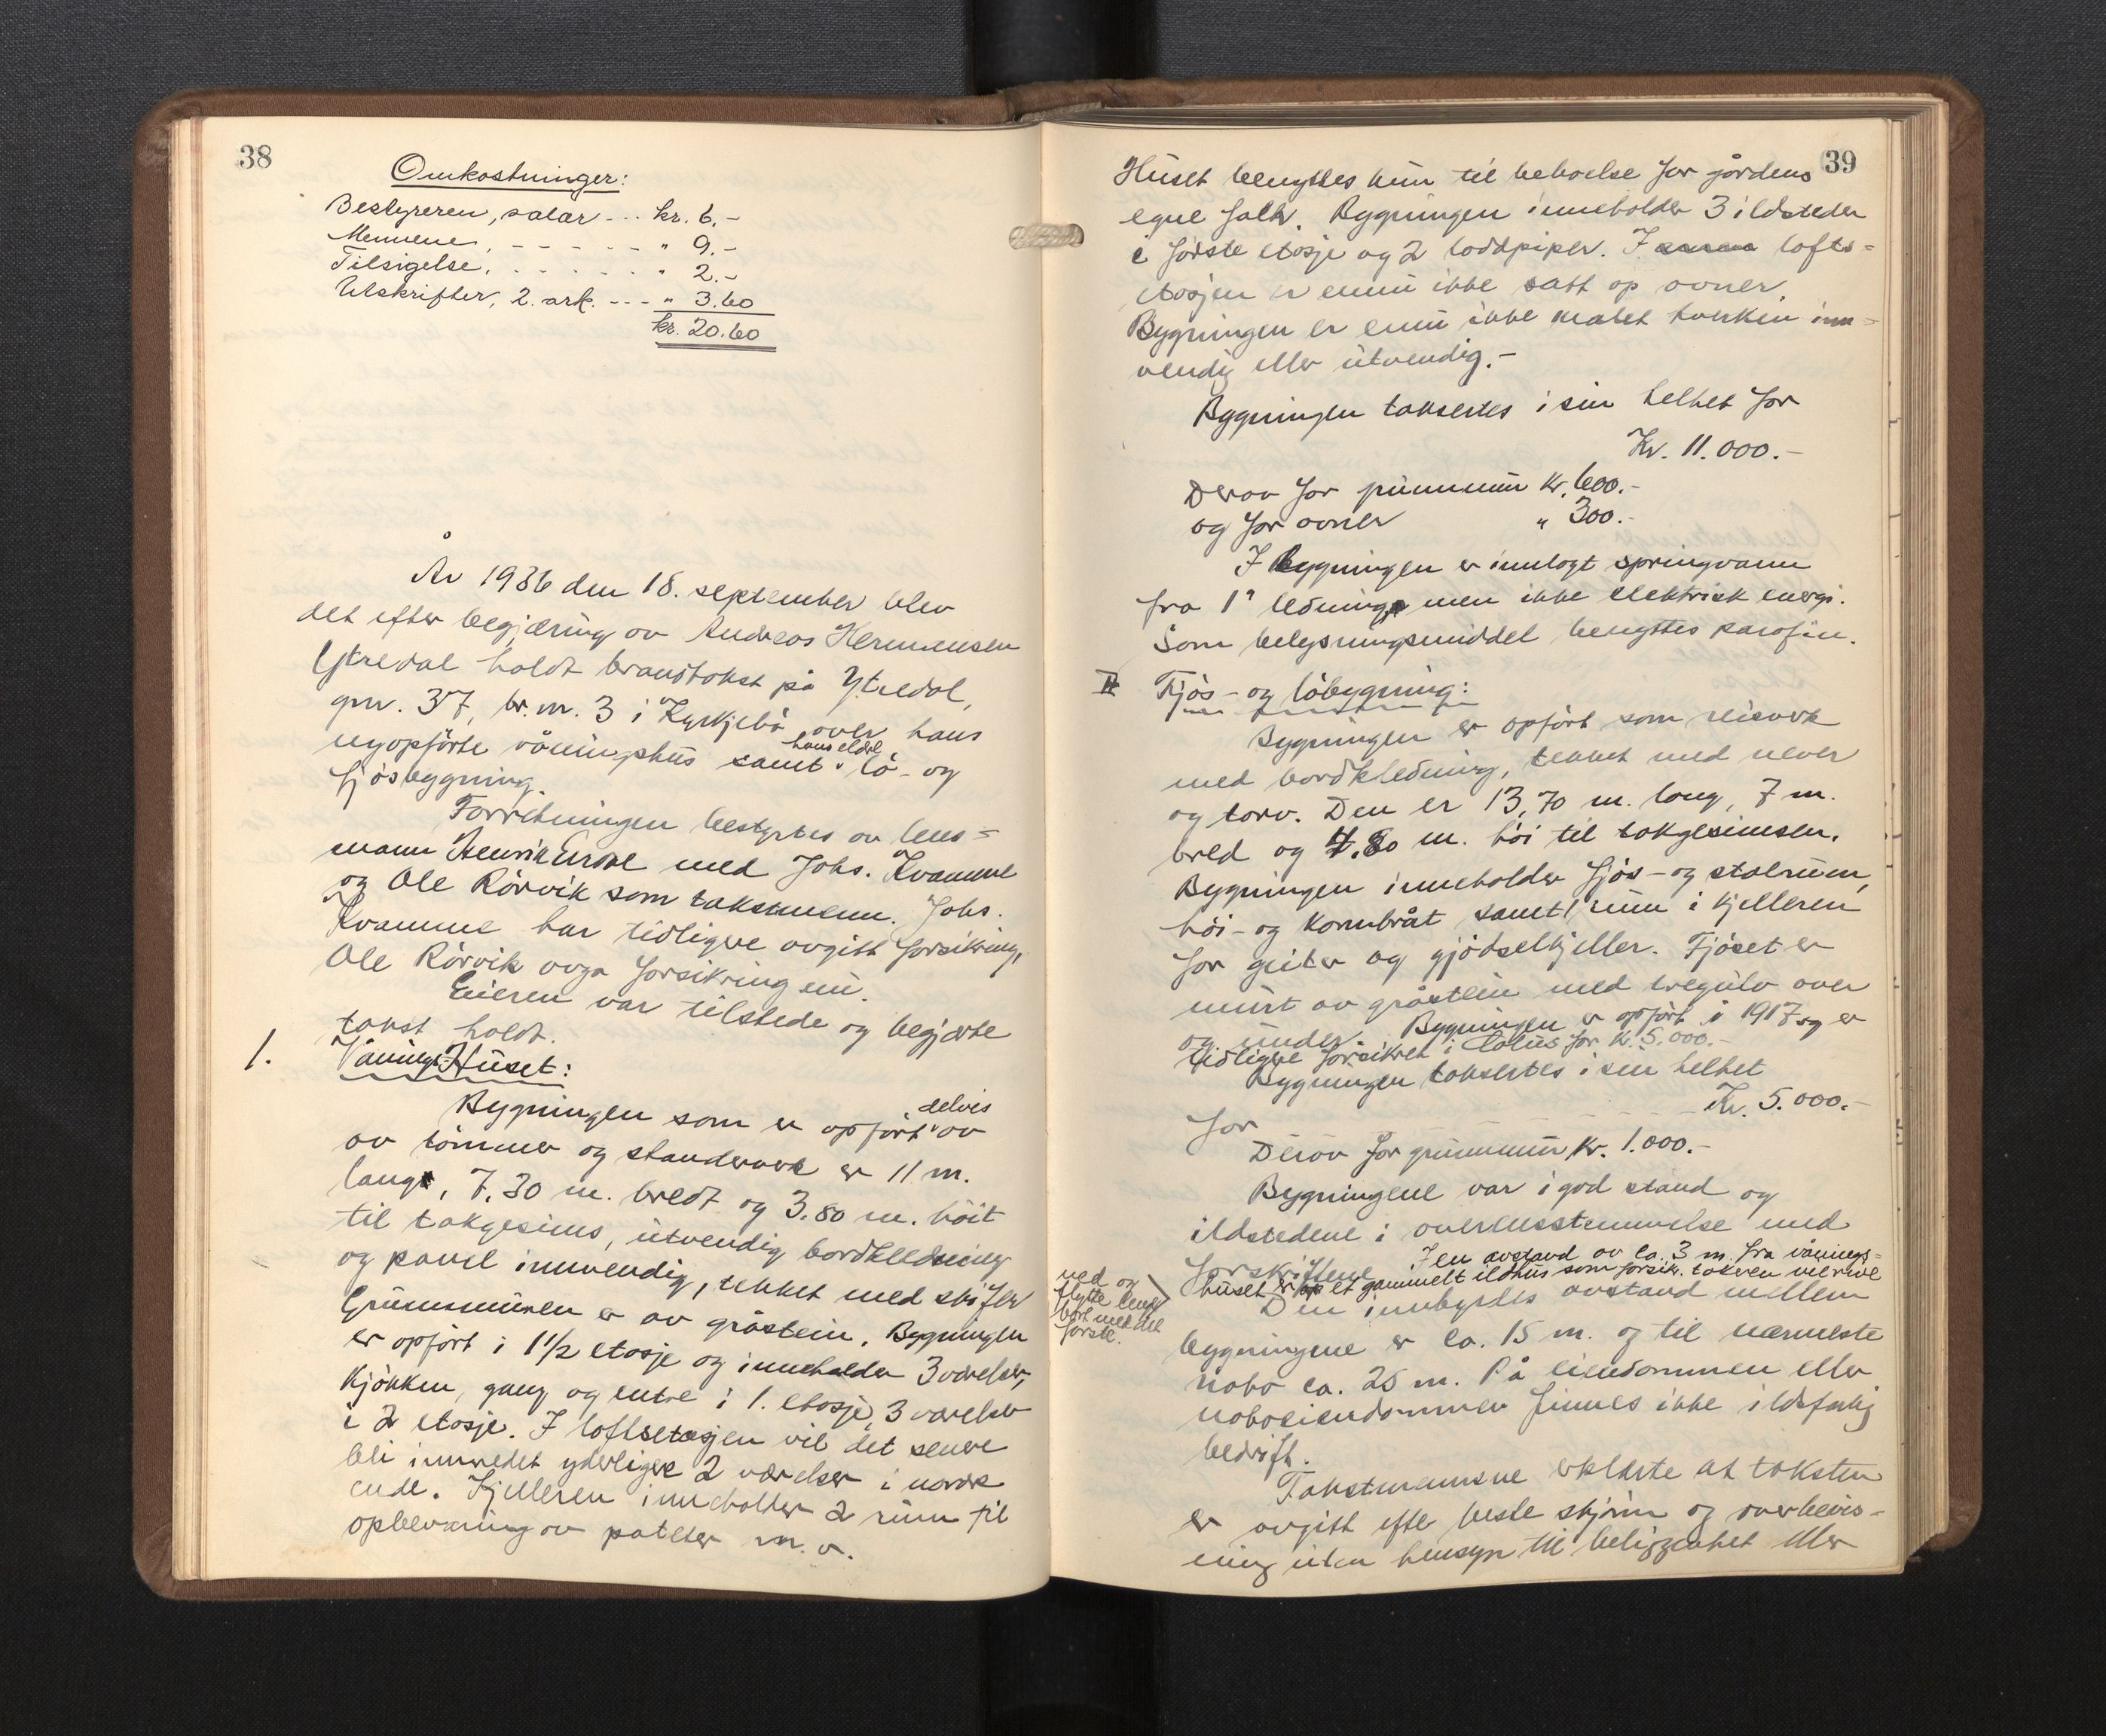 38
Omkostninger:
Bestyreren, salær ... kr. 6.-
Mennene, - - - - - " 9.-
Tilsigelse, . . . . . . " 2.-
Utskrifter, 2. ark. - - - " 3.60
kr. 20.60
År 1936 den 18. september blev
det efter begjæring av Andreas Hermansen
Ytredal holdt brandtakst på Ytredal,
gnr. 37, br.nr. 3 i Kyrkjebø over hans
nyopførte våningshus samt hans eldre lø- og
fjøsbygning.
Forretningen bestyrtes av lens=
mann Henrik med Johs. Kvamme
og Ole Rørvik som takstmenn. Johs.
Kvamme har tidligere avgitt forsikring,
Ole Rørvik avga forsikring nu.
Eieren var tilstede og begjærte
takst holdt.
1. Våningshuset:
Bygningen som er opført delvis av
av tømmer og standerverk er 11 m.
langt, 7.30 m. bredt og 3.80 m. høit
til takgesims, utvendig bordkledning
og panel innvendig, tekket med skifer
Grunnmuren er av gråstein. Bygningen
er opført i 1 1/2 etasje og inneholder 3 værelser,
kjøkken, gang og entre i 1. etasje, 3 værelser
i 2 etasje. I loftsetasjen vil det senere
bli innredet yderligere 2 værelser i nordre
ende. Kjelleren inneholder 2 rum til
opbevaring av poteter m.v.
39
Huset benyttes kun til beboelse for gårdens
egne folk. Bygningen inneholder 3 ildsteder
i første etasje og 2 loddpiper. I lofts=
etasjen er ennu ikke satt op ovner.
Bygningen er ennu ikke malet hverken inn=
vendig eller utvendig.-
Bygningen takseres i sin helhet for
Kr. 11.000.-
Derav for grunnmur kr. 600.-
og for ovner " 300.-
I bygningen er innlagt springvann
fra 1" ledning men ikke elektrisk energi.
Som belysningsmiddel benyttes parafin.
II Fjøs- og løbygning:
Bygningen er opført som reisverk
med bordkledning, tekket med never
og torv. Den er 13,70 m. lang, 7 m.
bred og 4.80 m. høi til takgesimsen.
Bygningen inneholder fjøs- og stalrum,
høi- og kornbråt samt rum i kjelleren
for geiter og gjødselkjeller. Fjøset er
murt av gråstein med tregulv over
og under. Bygningen er opført i 1917 og er
tidligere forsikret i for kr. 5.000.-
Bygningen takseres i sin helhet
for - - - - Kr. 5.000.-
Derav for grunnmur kr. 1.000.-
Bygningene var i god stand og
ildstedene i overensstemmelse med
forskriftene. I en avstand av ca. 3 m. fra vånings=
huset er et gammelt ildhus som forsik. takeren vil rive
ned og
flytte lenger
bort med det
første.
Den innbyrdes avstand mellem
bygningene er ca. 15 m. og til nærmeste
nabo ca. 25 m. På eiendommen eller
naboeiendommen finnes ikke ildsfarlig
bedrift.
Takstmennene erklærte at taksten
er avgitt efter beste skjønn og overbevis=
ning uten hensyn til beliggenhet eller